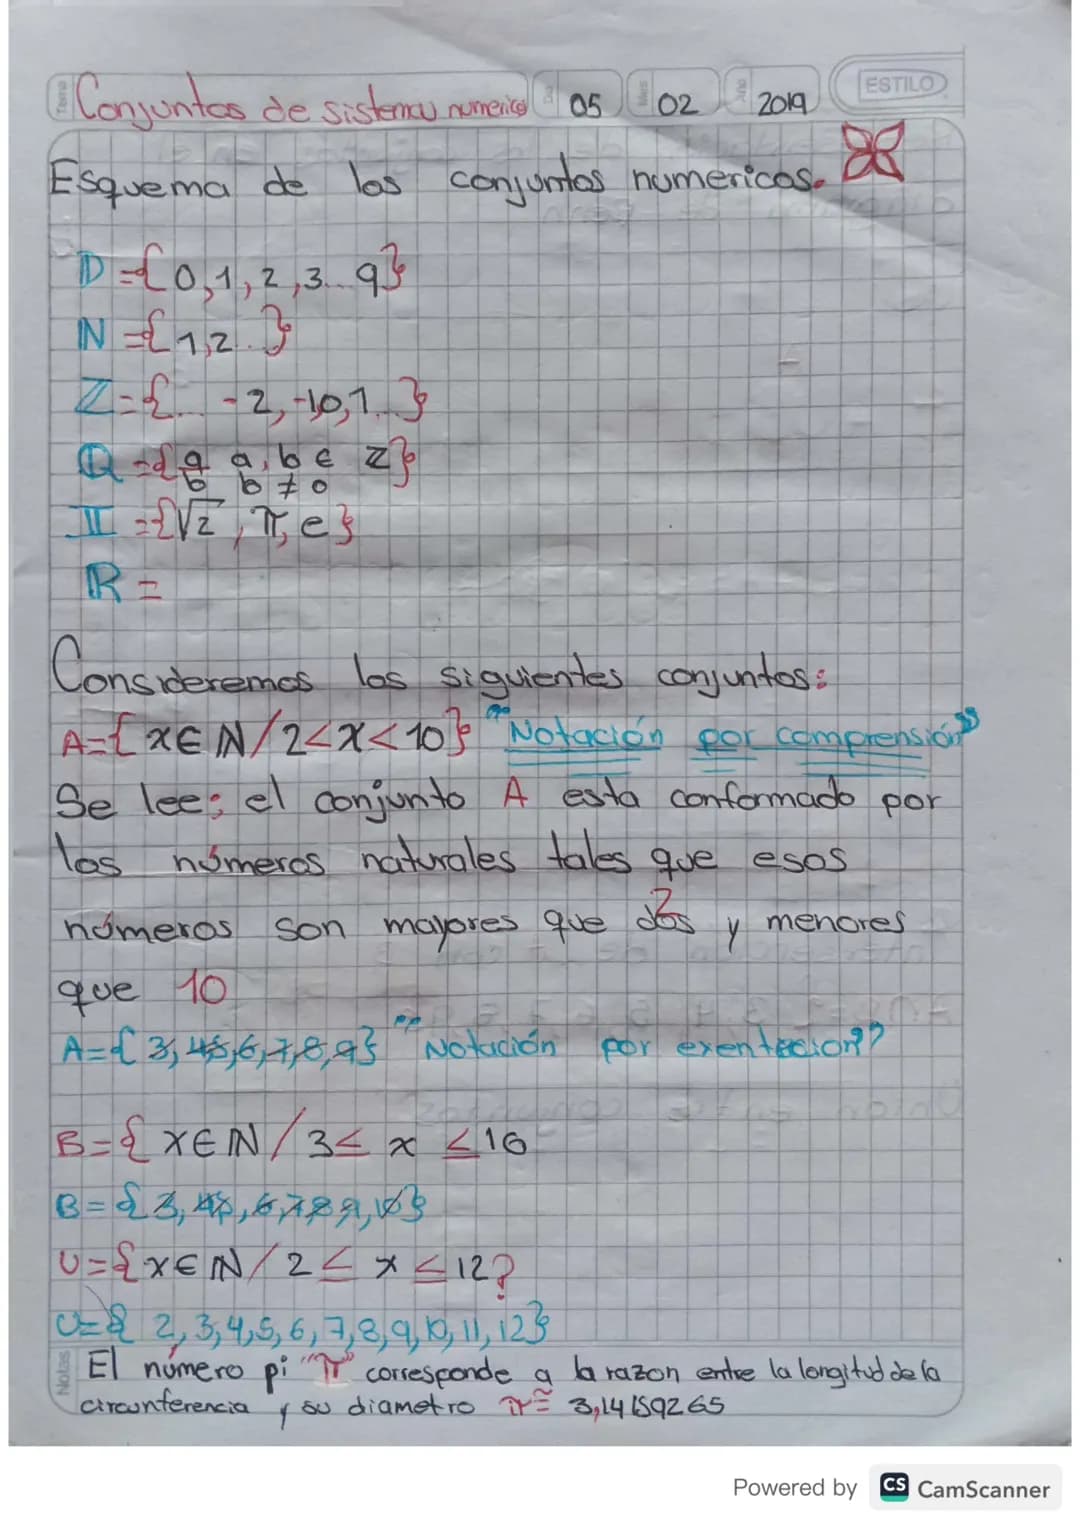 Tema Conjuntos de sistemas numericos Día 05 Mes 02 Año 2019 ESTILO
Esquema de los conjuntos numericos.
D={0,1,2,3...9}
N={1,2...}
Z={... -2,-1,0,1...}
Q={a/b a,b ∈ Z}
b ≠ 0
II={√2, π, e}
R=
Consideremos los siguientes conjuntos:
A={x∈N/2<x<10} "Notación por comprensión"
Se lee: el conjunto A esta conformado por
los números naturales tales que esos
números son mayores que dos y menores
que 10
A={3,4,5,6,7,8,9} "Notación por exentecion"
B={x∈N/3≤ x ≤10
B={3,4,5,6,7,8,9,10}
U={x∈N/2≤ x ≤12}
U={2,3,4,5,6,7,8,9,10,11,12}
Notas El número pi "π" corresponde a la razon entre la longitud de la
circunferencia y su diametro π≅ 3,14159265
Powered by CS CamScanner